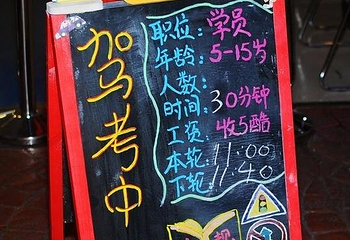 加马考中
职位：学员
年龄：5-15岁
人数：
时间：30分钟
工资：收5酷
本轮：11:00
下轮：11:40